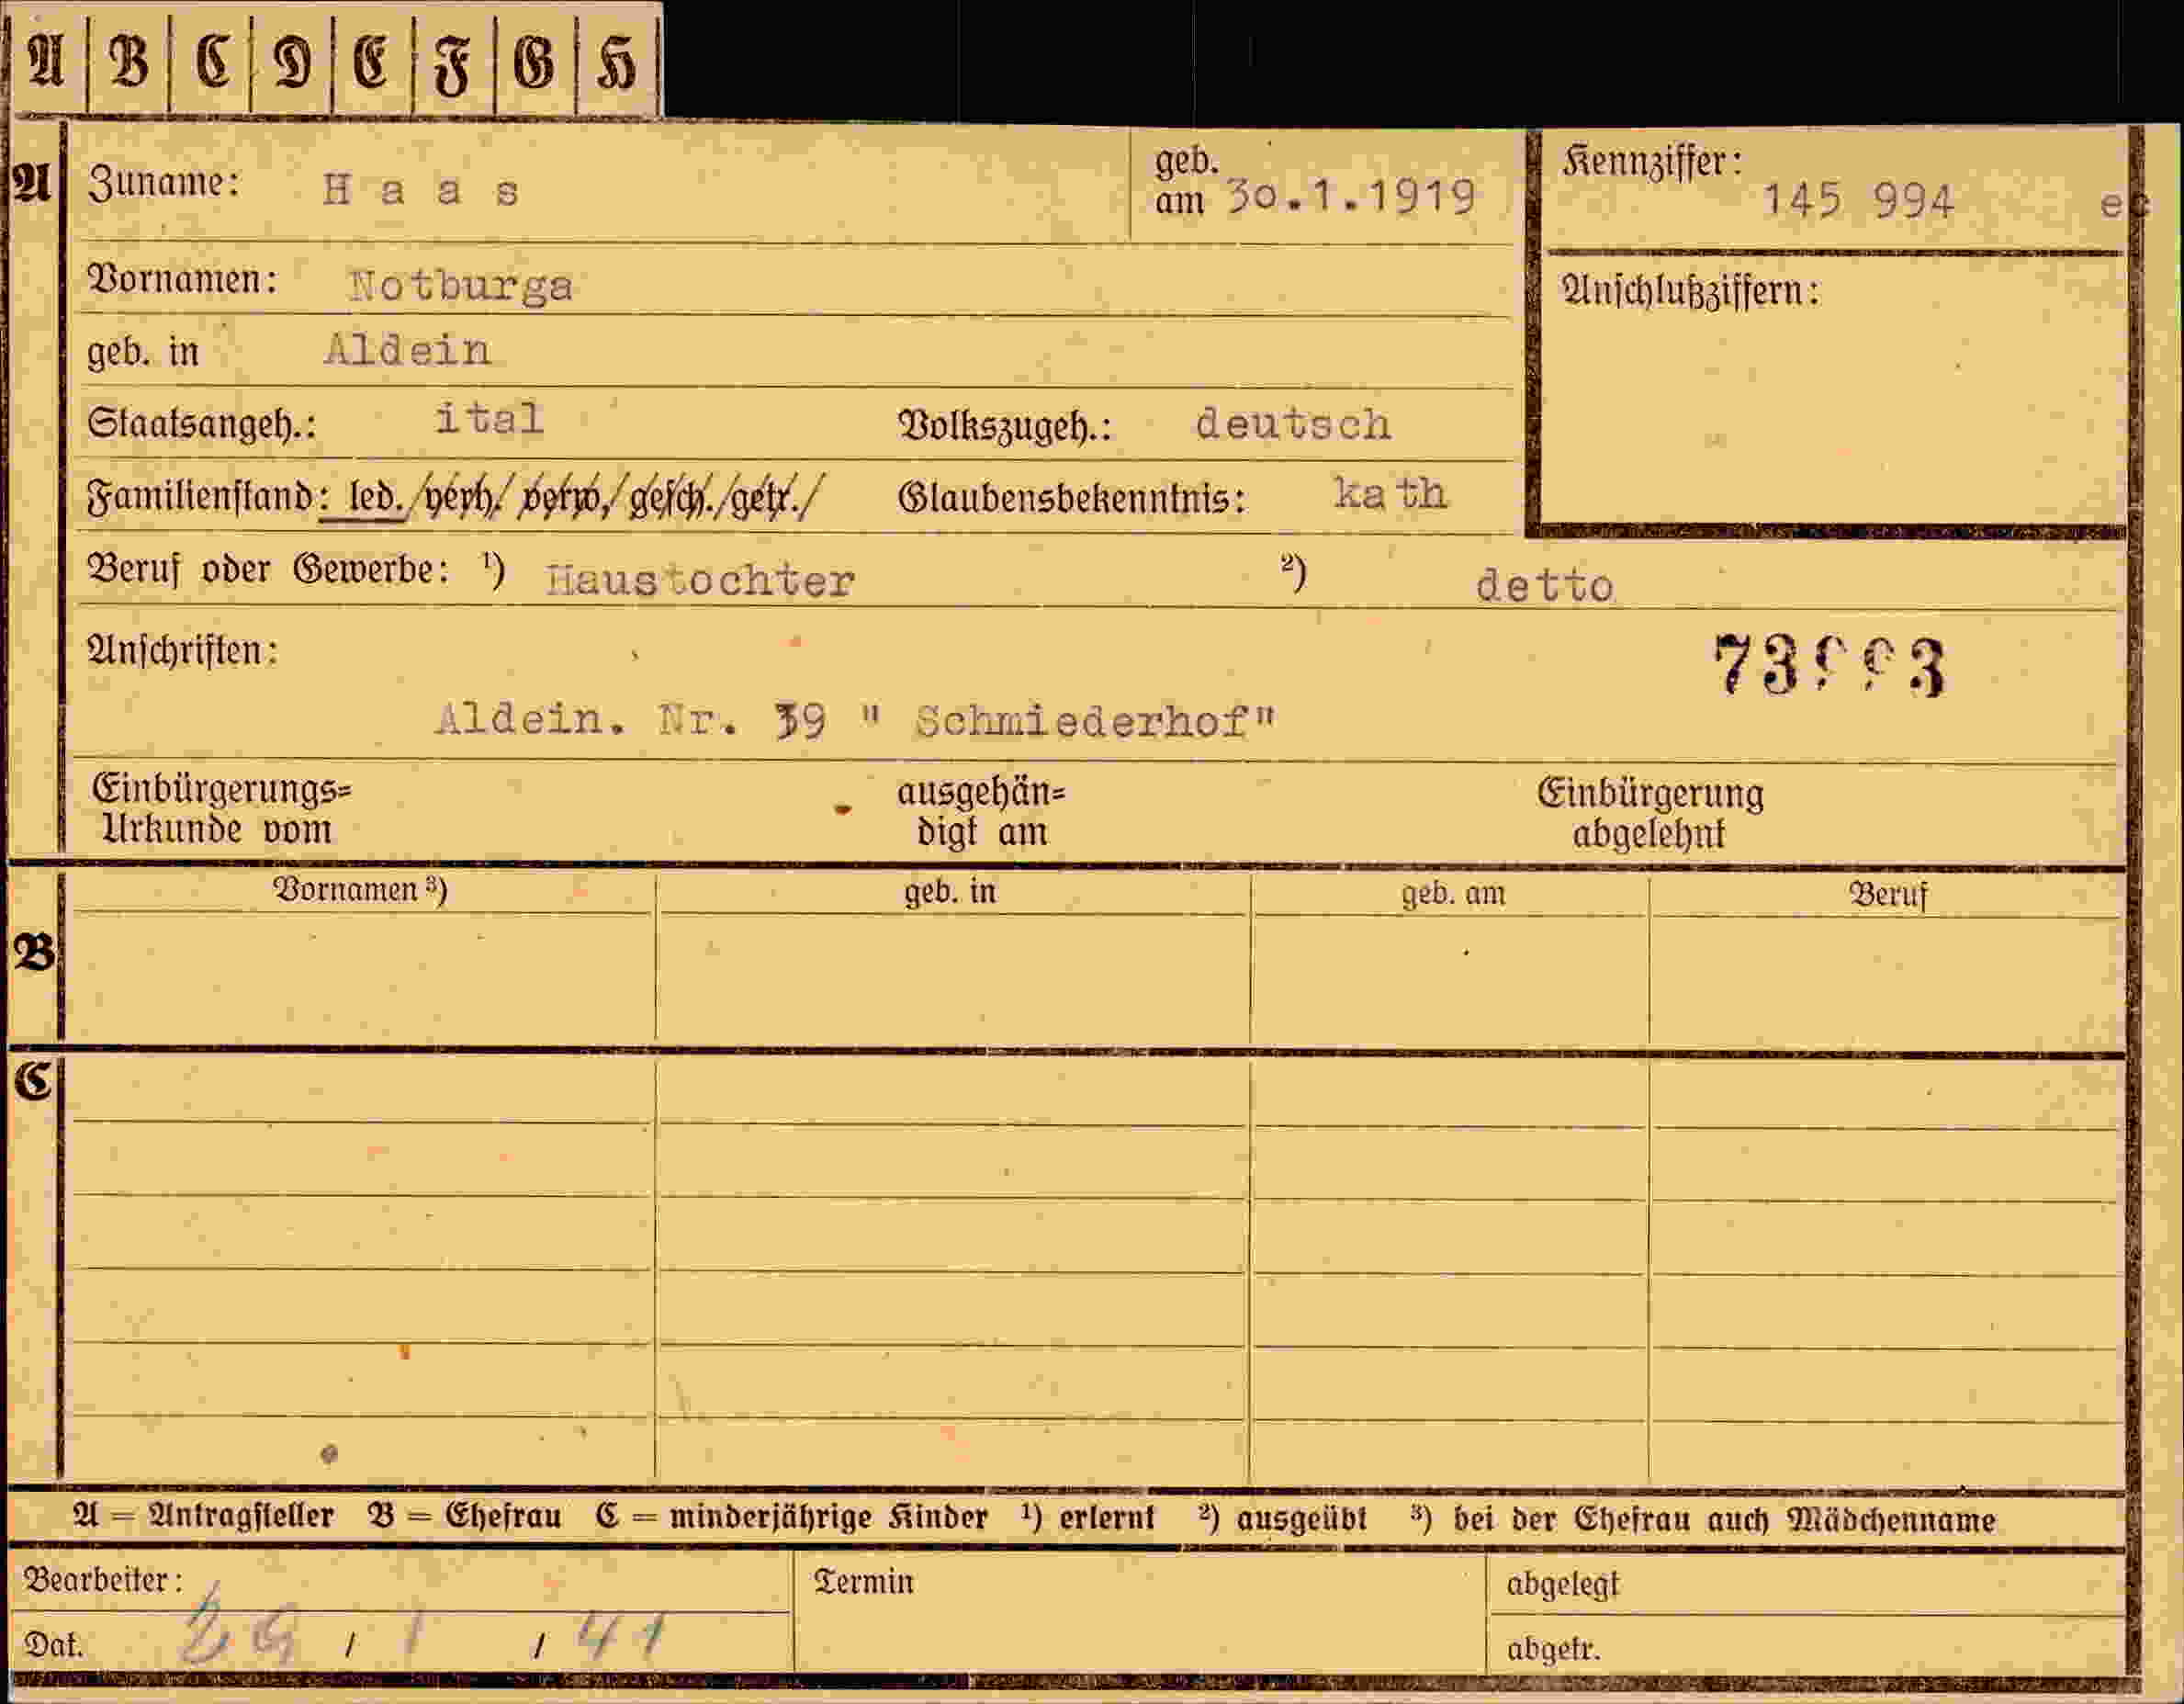 A B C D E F G H
A Zuname: Haas geb. am 30.1.1919 Kennziffer: 145 994
Vornamen: Notburga Anschlußziffern:
geb. in Aldein
Staatsangeh.: ital Volkszugeh.: deutsch
Familienstand: led./verh./verw./gesch./getr./ Glaubensbekenntnis: kath
Beruf oder Gewerbe: 1) Haustochter 2) detto
Anschriften:
Aldein. Nr. 39 " Schmiederhof"
Einbürgerungs= Urkunde vom ausgehän= digt am Einbürgerung abgelehnt
B Vornamen 3) geb. in geb. am Beruf
C
A = Antragsteller B = Ehefrau C = minderjährige Kinder 1) erlernt 2) ausgeübt 3) bei der Ehefrau auch Mädchenname
Bearbeiter: Termin abgelegt
Dat. / 1 / 41 abgetr.